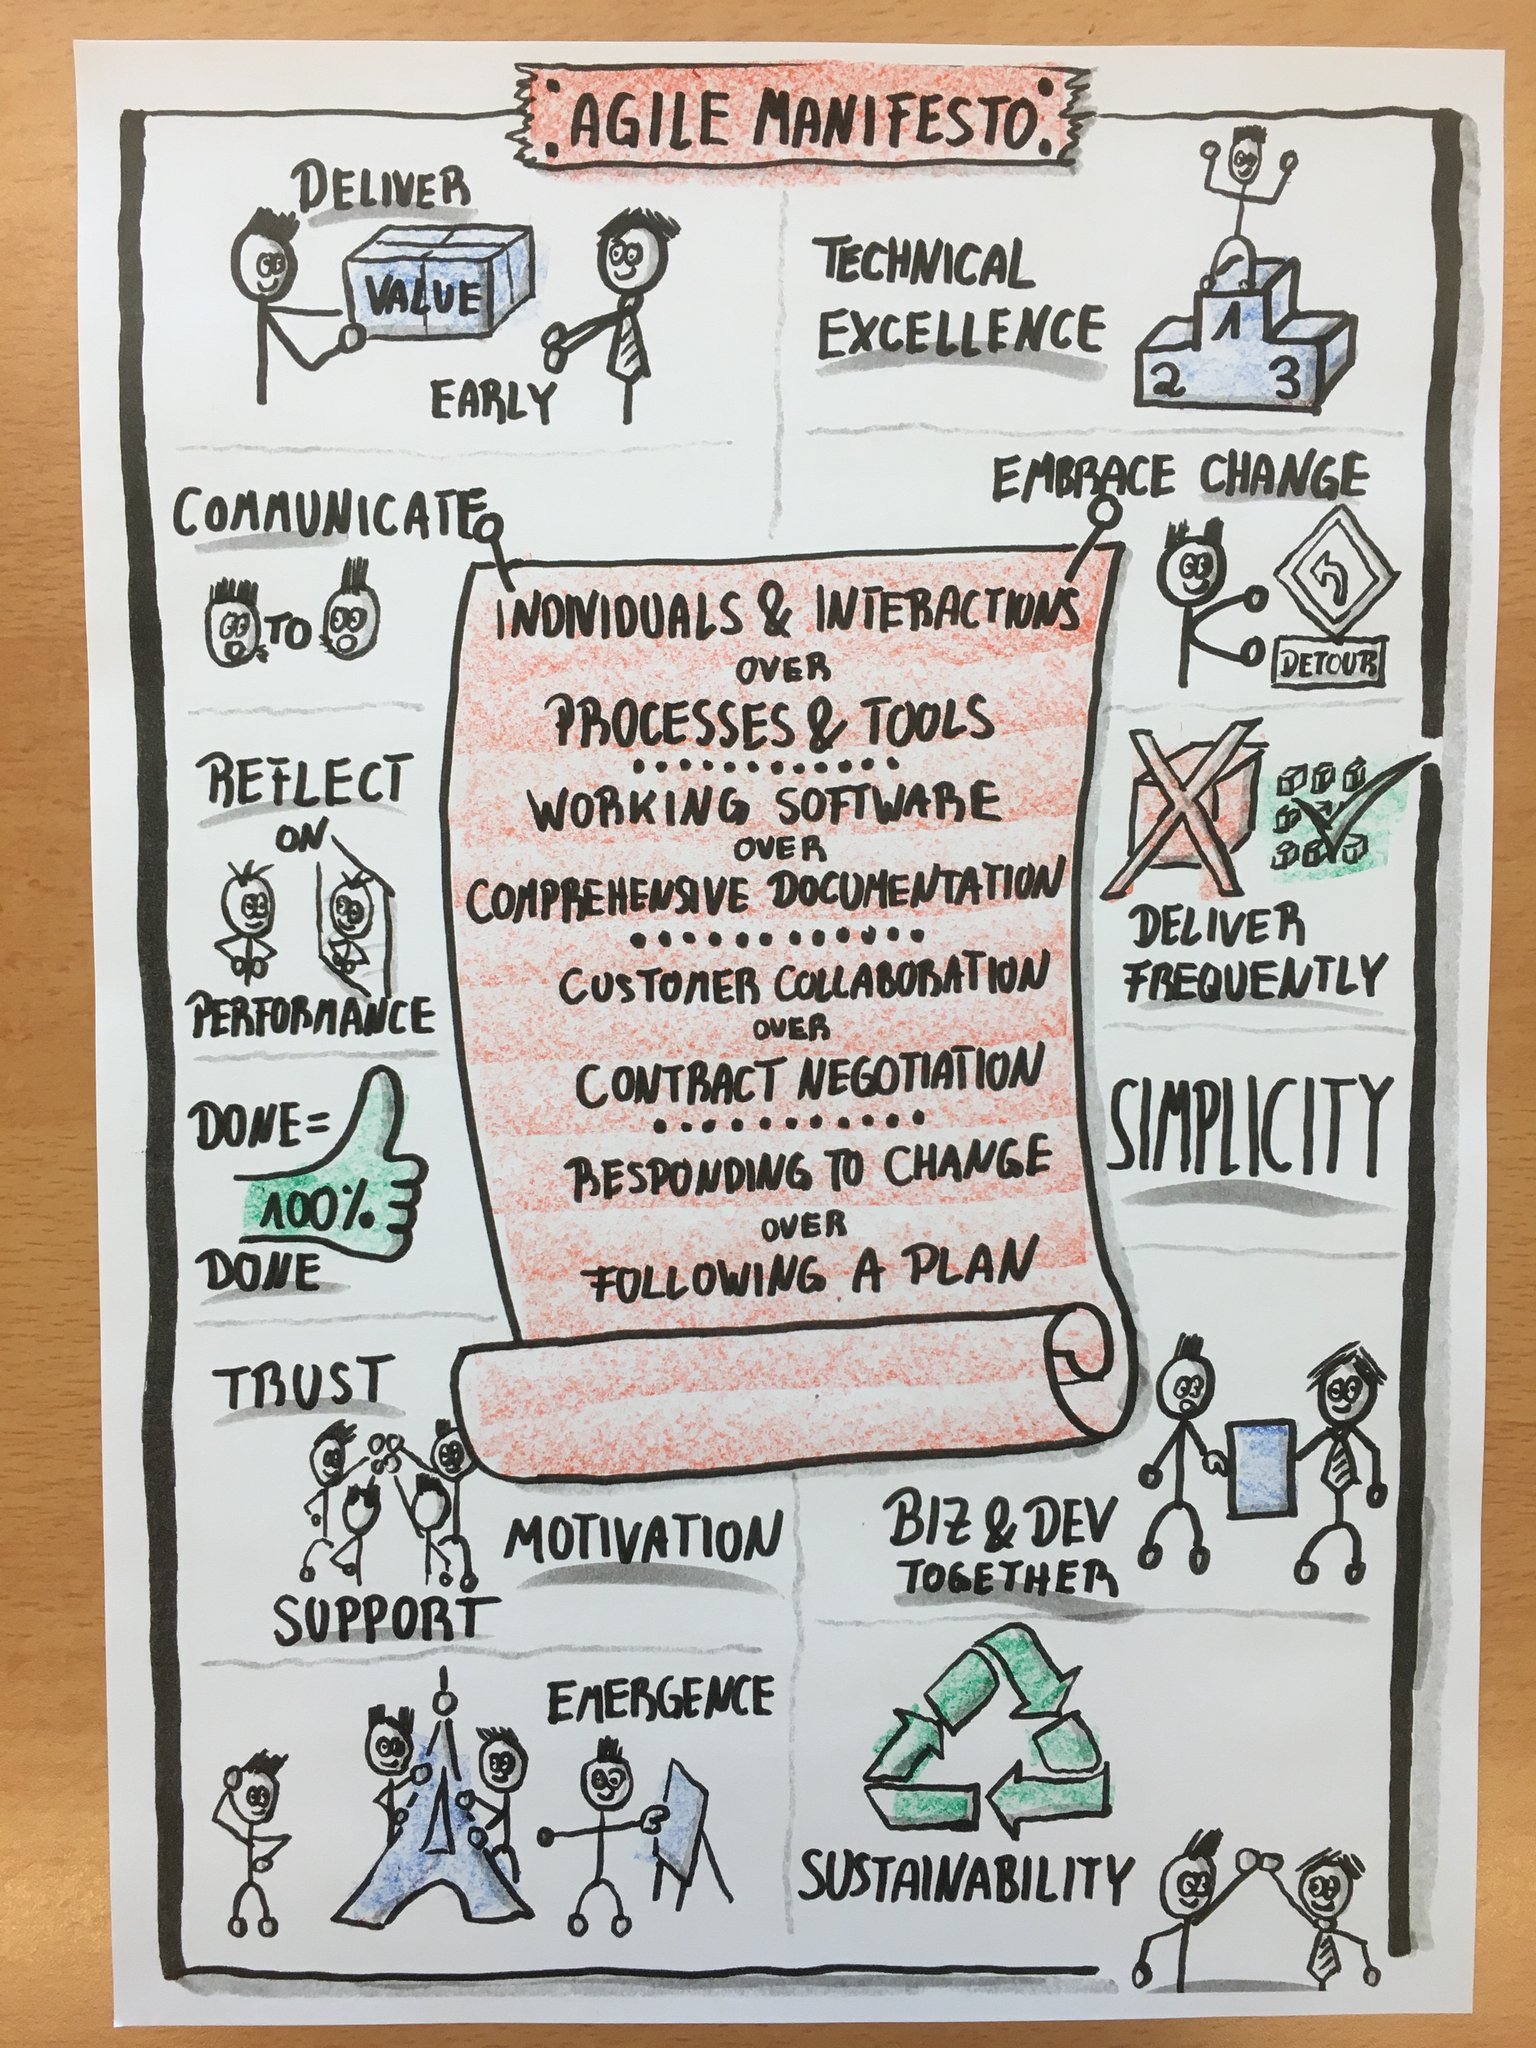 AGILE MANIFESTO
DELIVER
VALUE
EARLY
TECHNICAL
EXCELLENCE
1
2
3
COMMUNICATE
TO
EMBRACE CHANGE
DETOUR
INDIVIDUALS & INTERACTIONS
OVER
PROCESSES & TOOLS
WORKING SOFTWARE
OVER
COMPREHENSIVE DOCUMENTATION
CUSTOMER COLLABORATION
OVER
CONTRACT NEGOTIATION
RESPONDING TO CHANGE
OVER
FOLLOWING A PLAN
REFLECT
ON
PERFORMANCE
DELIVER
FREQUENTLY
DONE =
100%
DONE
SIMPLICITY
TRUST
MOTIVATION
SUPPORT
BIZ & DEV
TOGETHER
EMERGENCE
SUSTAINABILITY